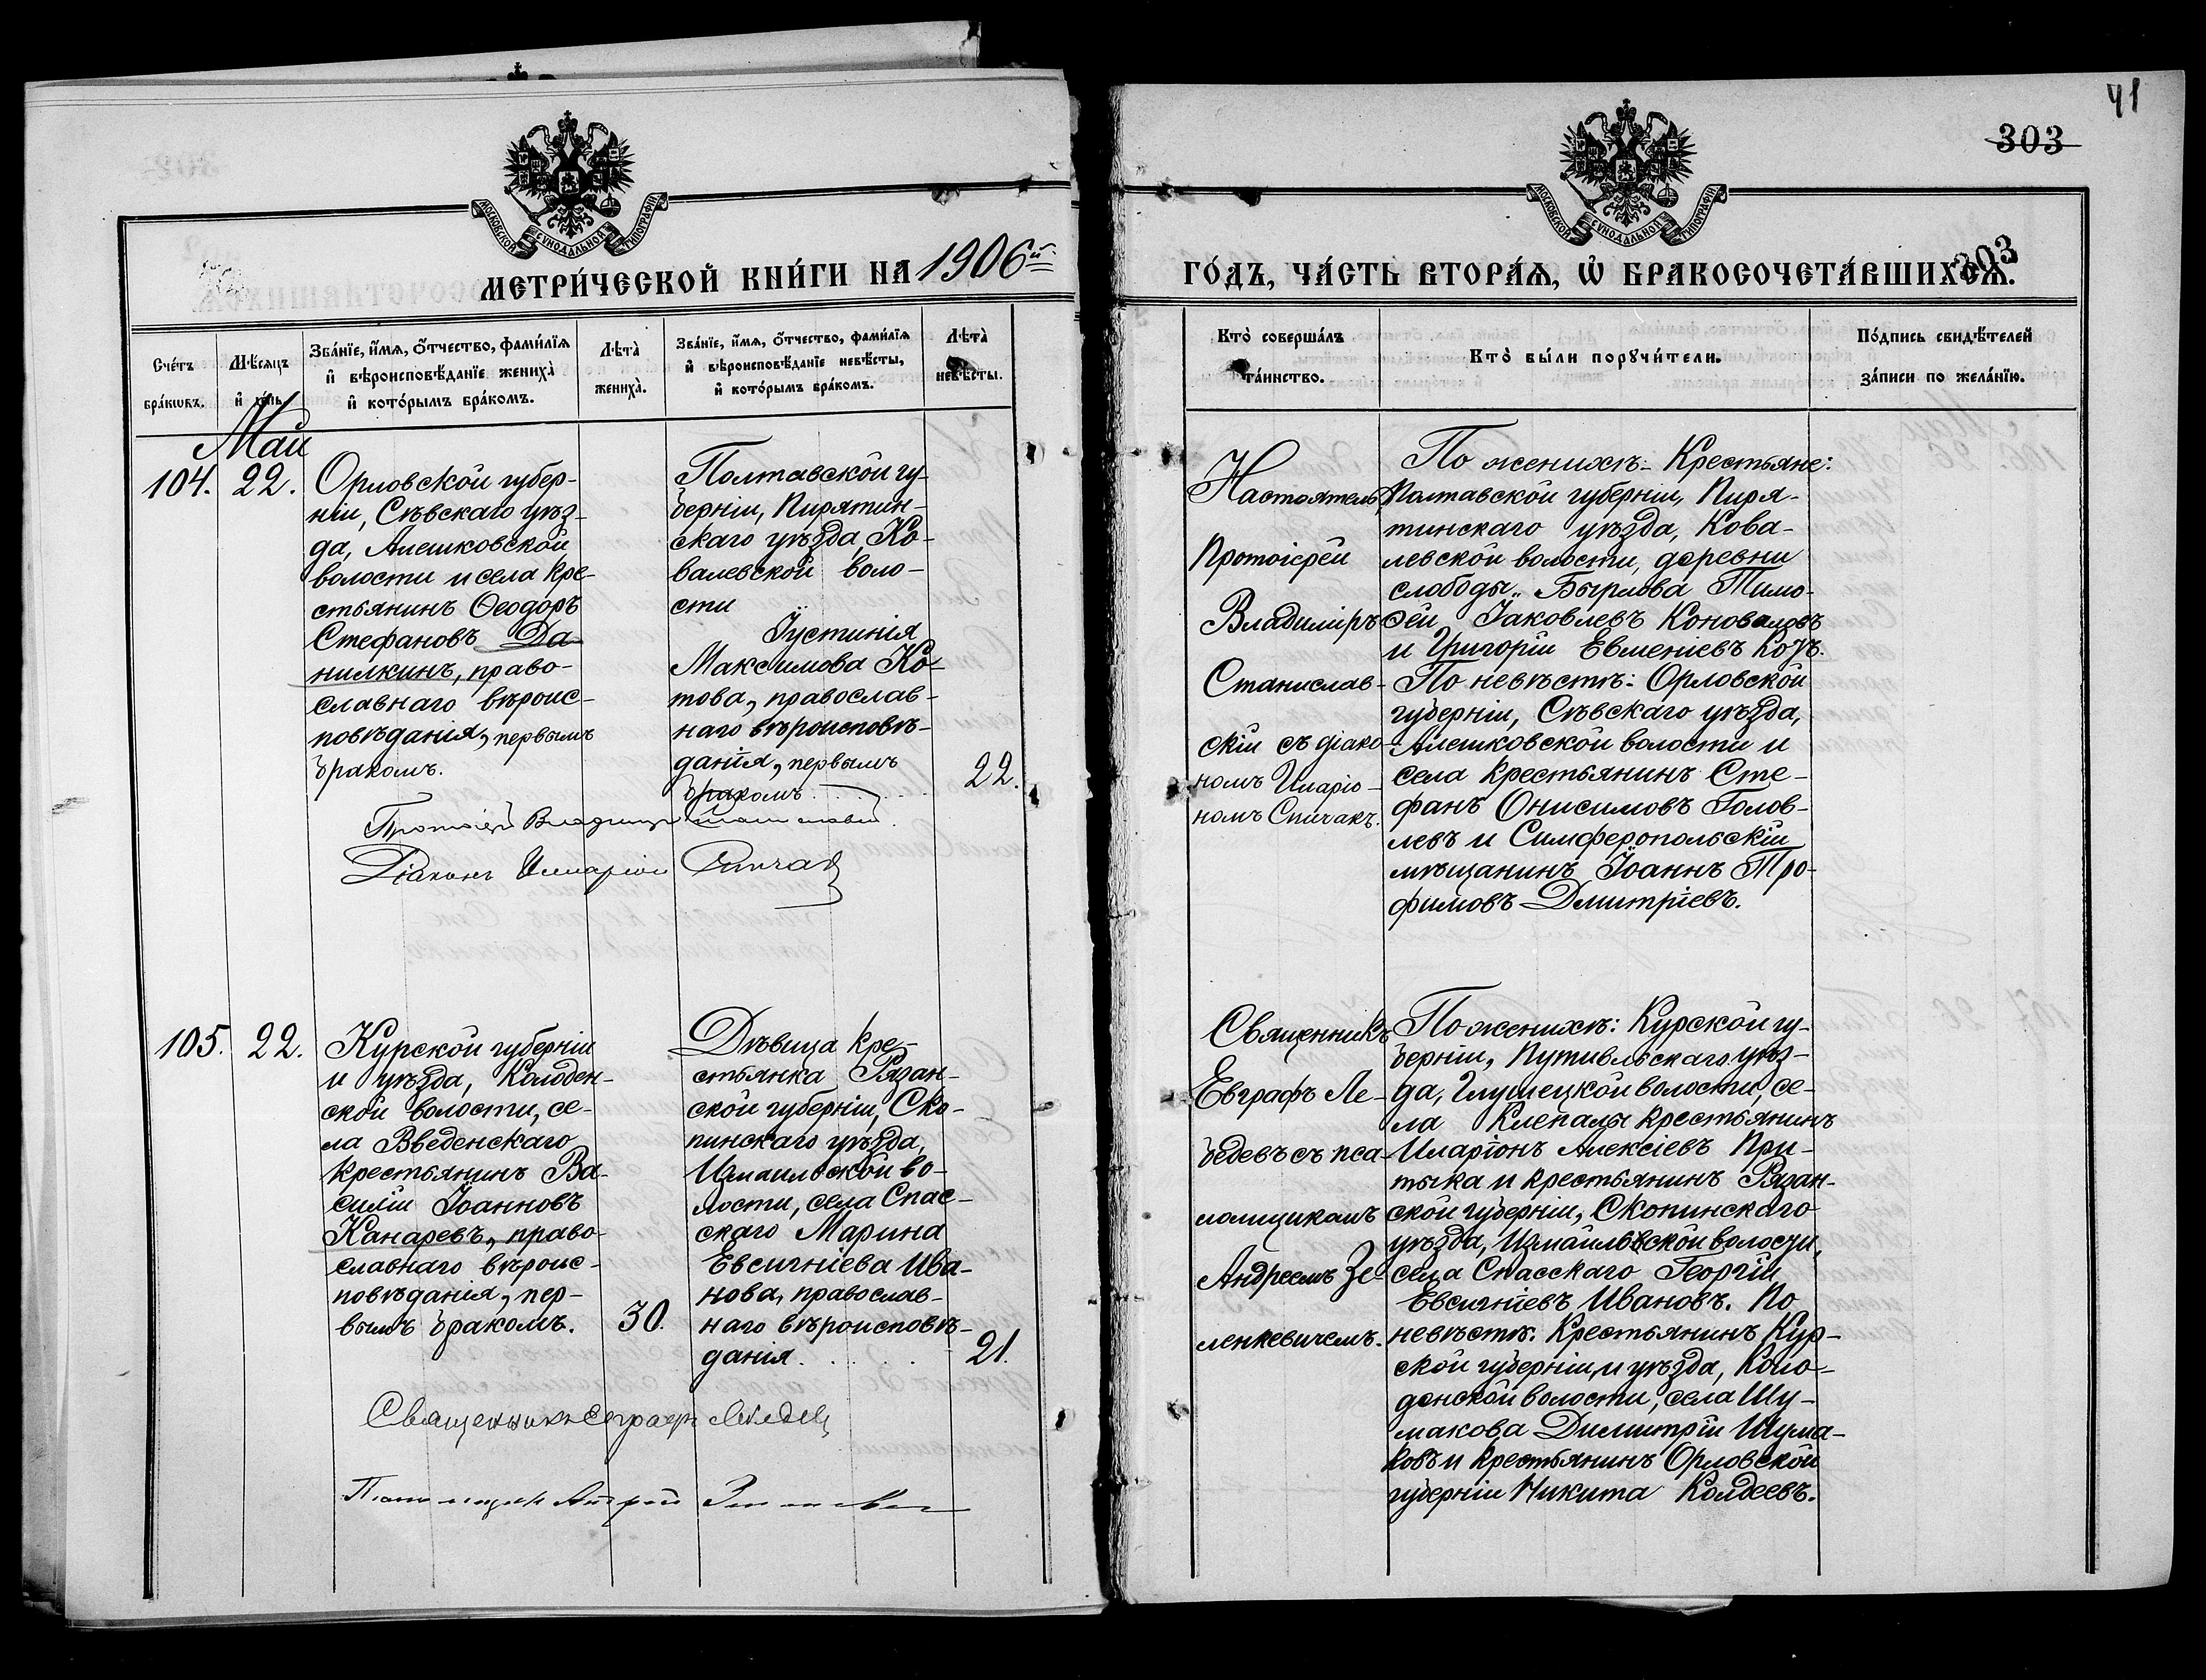 41
303
МОСКОВСКОЙ СѴНОДАЛЬНОЙ ТИПОГРАФІИ
МОСКОВСКОЙ СѴНОДАЛЬНОЙ ТИПОГРАФІИ
МЕТРИ́ЧЕСКОЙ КНИ́ГИ НА 1906й
ГО́ДЪ, ЧА́СТЬ ВТОРА́Ѧ, Ѡ҆ БРАКОСОЧЕТА́ВШИХСѦ.
303
Сче́тъ
бра́кѡвъ.
Мѣ́сѧцъ
и҆ де́нь.
Зва́нїе, и҆́мѧ, ѻ҆́тчество, фами́лїѧ
и҆ вѣроисповѣ́данїе жениха̀
и҆ кото́рымъ бра́комъ.
Лѣта̀
жениха̀.
Зва́нїе, и҆́мѧ, ѻ҆́тчество, фами́лїѧ
и҆ вѣроисповѣ́данїе невѣ́сты,
и҆ кото́рымъ бра́комъ.
Лѣта̀
невѣ́сты.
Кто̀ соверша́лъ
та́инство.
Кто̀ бы́ли порꙋчи́тели.
По́дпись свидѣ́телей
за́писи по жела́нїю.
Май
104. 22.
Орловской губер-
ніи, Сѣвскаго уѣз-
да, Алешковской
волости и села кре-
стьянинъ Ѳеодоръ
Стефановъ Да-
нилкинъ, право-
славнаго вѣроис-
повѣданія, первымъ
бракомъ.
Полтавской гу-
берніи, Пирятин-
скаго уѣзда, Ко-
валевской воло-
сти
Іустинія
Максимова Ко-
това, православ-
наго вѣроисповѣ-
данія, первымъ
бракомъ
22.
Протоіерей Владиміръ Станиславскій.
Діаконъ Иларіонъ Спичакъ
Настоятель
Протоіерей
Владиміръ
Станислав-
скій съ діако-
номъ Иларіо-
номъ Спичакъ.
По женихѣ: Крестьяне:
Полтавской губерніи, Пиря-
тинскаго уѣзда, Кова-
левской волости, деревни
слободы
Тимо-
ѳей Іаковлевъ Коноваловъ
и Григорій Евменіевъ Козъ.
По невѣстѣ: Орловской
губерніи, Сѣвскаго уѣзда,
Алешковской волости и
села крестьянинъ Сте-
фанъ Онисимовъ Голов-
левъ и Симферопольскій
мѣщанинъ Іоаннъ Тро-
фимовъ Дмитріевъ.
105. 22.
Курской губерніи
и уѣзда, Колоден-
ской волости, се-
ла Введенскаго
крестьянинъ Ва-
силій Іоанновъ
Канаревъ, право-
славнаго вѣроис-
повѣданія, пер-
вымъ бракомъ.
30.
Дѣвица кре-
стьянка Рязан-
ской губерніи, Ско-
пинскаго уѣзда,
Измаильской во-
лости, села Спас-
скаго Марина
Евсигніева Ива-
нова, православ-
наго вѣроисповѣ-
данія
21.
Священникъ Евграфъ Лебедевъ
Псаломщикъ Андрей
Священникъ
Евграфъ Ле-
бедевъ съ пса-
ломщикомъ
Андреемъ Зе-
ленкевичемъ.
По женихѣ: Курской гу-
берніи, Путивльскаго уѣз-
да, Глушецкой волости, се-
ла Клепалы крестьянинъ
Иларіонъ Алексіевъ При-
тыка и крестьянинъ Рязан-
ской губерніи, Скопинскаго
уѣзда, Измаильвской волости,
села Спасскаго Георгій
Евсигніевъ Ивановъ. По
невѣстѣ: Крестьянинъ Кур-
ской губерніи и уѣзда, Коло-
денской волости, села Шу-
макова Димитрій Шума-
ковъ и крестьянинъ Орловской
губерніи Никита Колдеевъ.